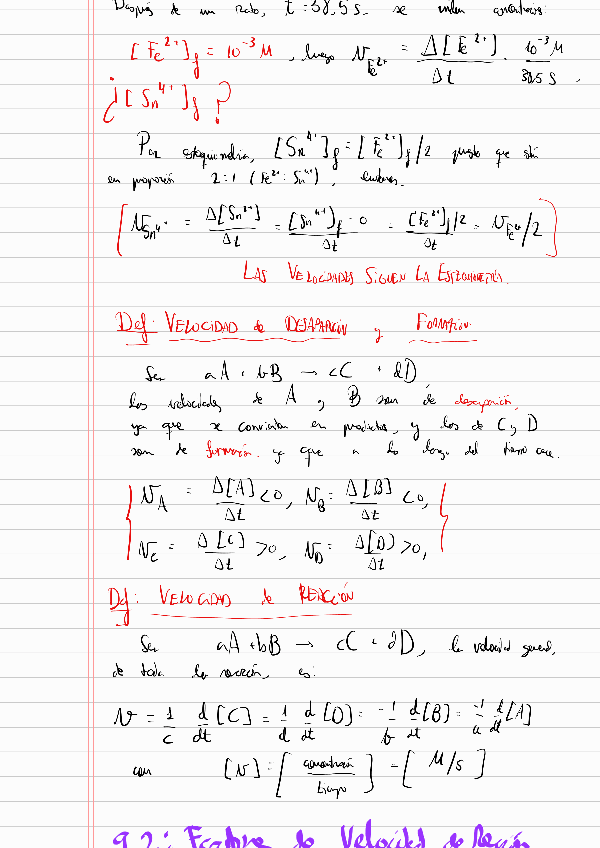 Después de un rato, t = 38,5 s. se miden concentraciones:
[Fe²⁺]f = 10⁻³ M , luego v_Fe²⁺ = Δ[Fe²⁺]/Δt · 10⁻³ M/38.5 s ,
¿[Sn⁴⁺]f ?
Por estequiometria, [Sn⁴⁺]f = [Fe²⁺]f/2 puesto que están
en proporción 2:1 (Fe²⁺: Sn⁴⁺) , entonces.
[ v_Sn⁴⁺ = Δ[Sn⁴⁺]/Δt = ([Sn⁴⁺]f - 0)/Δt = ([Fe²⁺]f/2)/Δt = v_Fe²⁺/2 ]
LAS VELOCIDADES SIGUEN LA ESTEQUIOMETRÍA.
Def: VELOCIDAD de DESAPARICIÓN y FORMACIÓN.
Sea aA + bB → cC + dD
las velocidades de A y B son de desaparición,
ya que se convierten en productos, y las de C y D
son de formación. ya que a lo largo del tiempo
{ v_A = Δ[A]/Δt < 0, v_B = Δ[B]/Δt < 0,
v_C = Δ[C]/Δt > 0, v_D = Δ[D]/Δt > 0, }
Def: VELOCIDAD de REACCIÓN
Sea aA + bB → cC + dD, la velocidad general,
de toda la reacción, es:
v = 1/c d/dt [C] = 1/d d/dt [D] = -1/b d/dt [B] = -1/a d/dt [A]
con [v] = [ concentración/tiempo ] = [ M/s ]
9.2.: Factores de Velocidad de Reacción